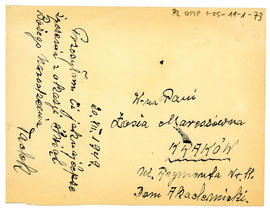 PL OPIP 1-25-11-1-73
20.XII.1949.
Przesyłam Ci jak najlepsze
życzenia z okazji Świąt
Bożego Narodzenia
Tadek
W-na Pani
Zosia Maressówna
KRAKÓW
ul. Reymonta Nr. 11.
Dom Akademicki